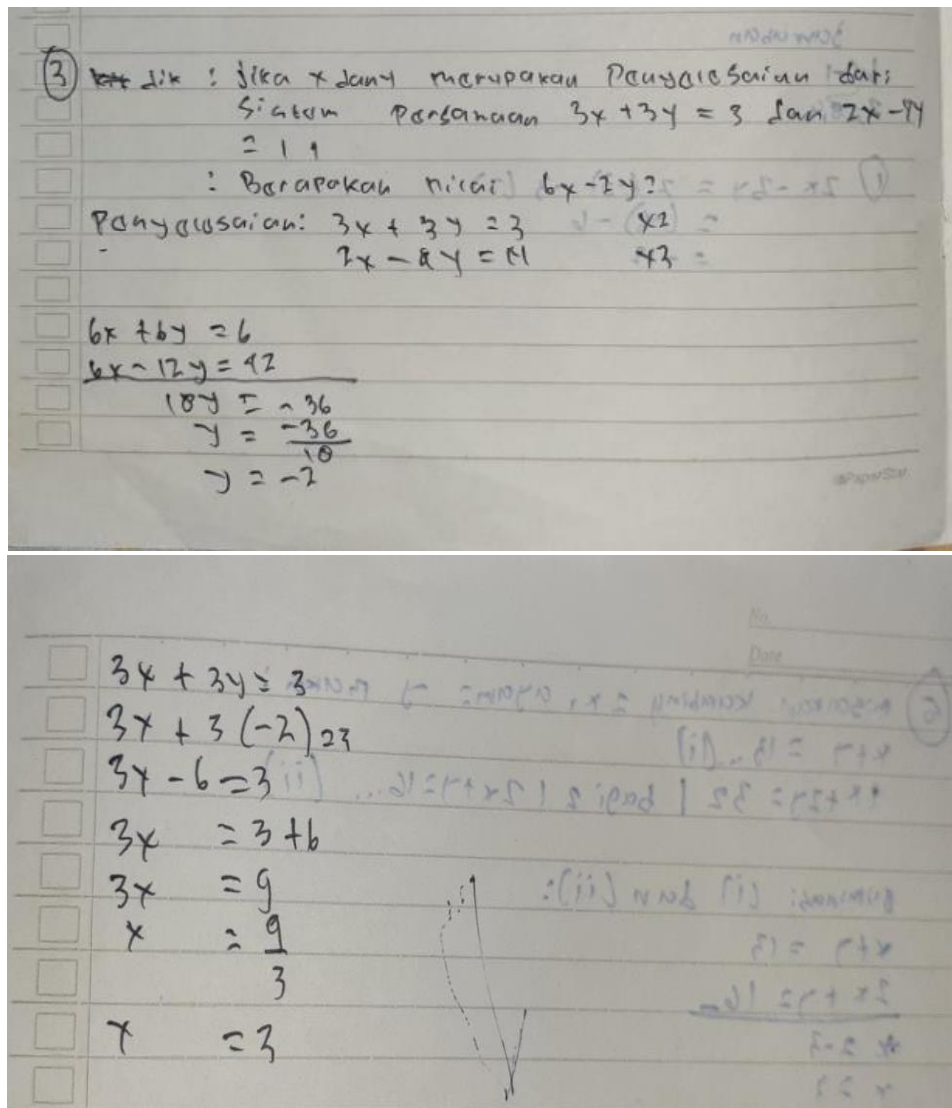 ③ dik : Jika x dany merupakan Penyelesaian dari
Sistem Persamaan 3x + 3y = 3 dan 2x - 4y
= 14
: Berapakah nilai 6x - 2y?
Penyelesaian: 3x + 3y = 3 x2
2x - 4y = 14 x3
6x + 6y = 6
6x - 12y = 42
18y = -36
y = -36
18
y = -2
@PAPERSLN
No.
Date
3x + 3y = 3
3x + 3 (-2) = 3
3x - 6 = 3
3x = 3 + 6
3x = 9
x = 9
3
x = 3